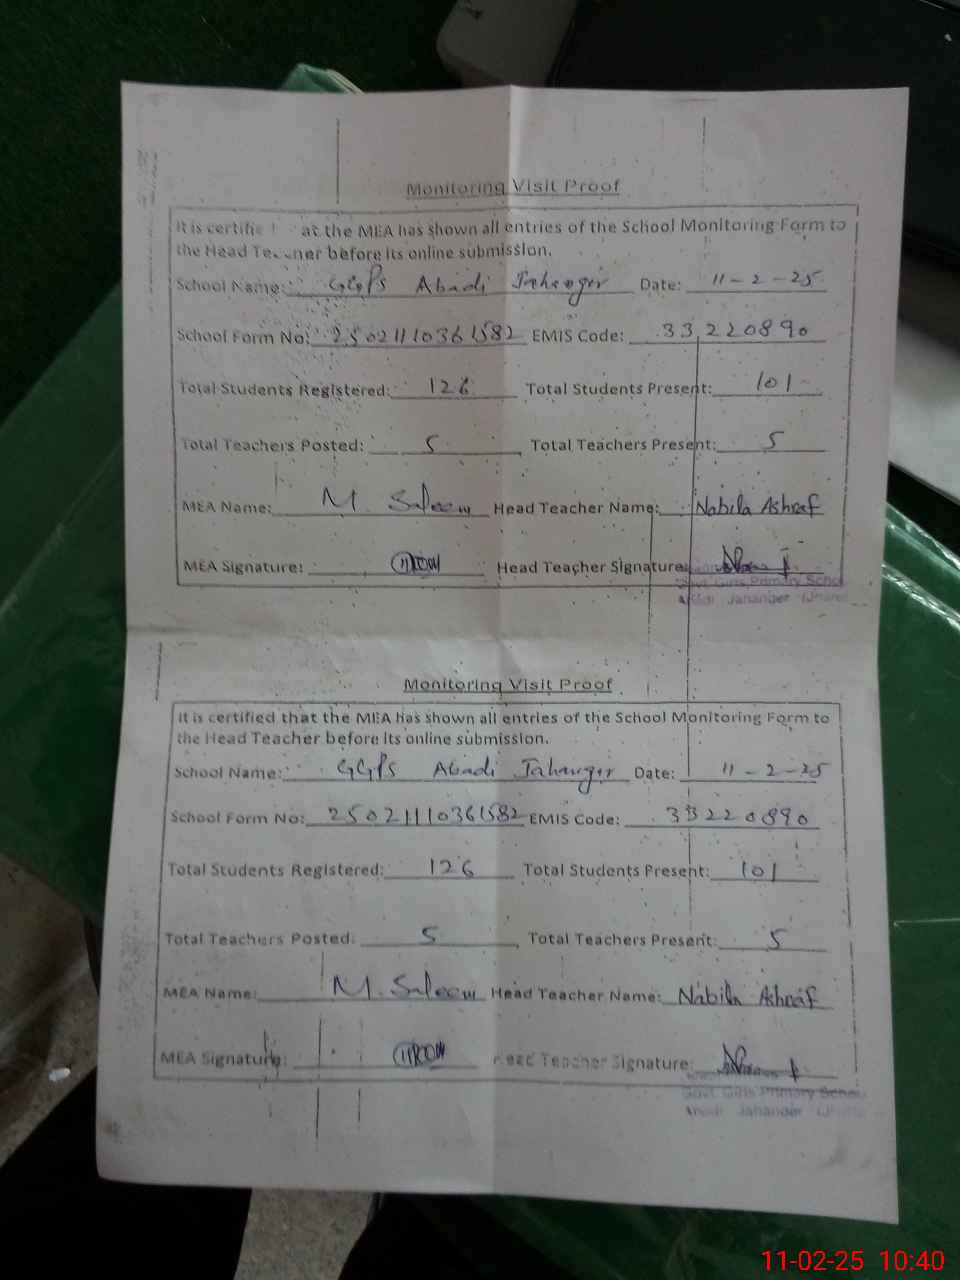 Monitoring Visit Proof
It is certifie at the MEA has shown all entries of the School Monitoring Form to
the Head before its online submission.
School Name: GGPS Abadi Jahangir Date: 11-2-25
School Form No: 25021110361582 EMIS Code: 33220890
Total Students Registered: 126 Total Students Present: 101
Total Teachers Posted: 5 Total Teachers Present: 5
MEA Name: M. Saleem Head Teacher Name: Nabila Ashraf
MEA Signature: Head Teacher Signature:
Govt Girls Primary Schoo
Jahanger
Monitoring Visit Proof
It is certified that the MEA has shown all entries of the School Monitoring Form to
the Head Teacher before its online submission.
School Name: GGPS Abadi Jahangir Date: 11-2-25
School Form No: 25021110361582 EMIS Code: 33220890
Total Students Registered: 126 Total Students Present: 101
Total Teachers Posted: 5 Total Teachers Present: 5
MEA Name: M. Saleem Head Teacher Name: Nabila Ashraf
MEA Signature: Head Teacher Signature:
Govt Girls Primary Schoo
Abadi Jahanger
11-02-25 10:40